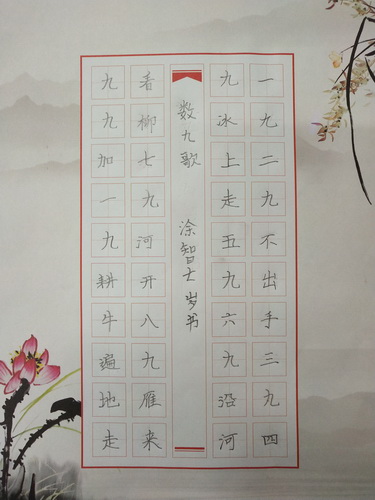 一九二九不出手三九四
九冰上走五九六九沿河
数九歌 涂智岁书
看柳七九河开八九雁来
九九加一九耕牛遍地走